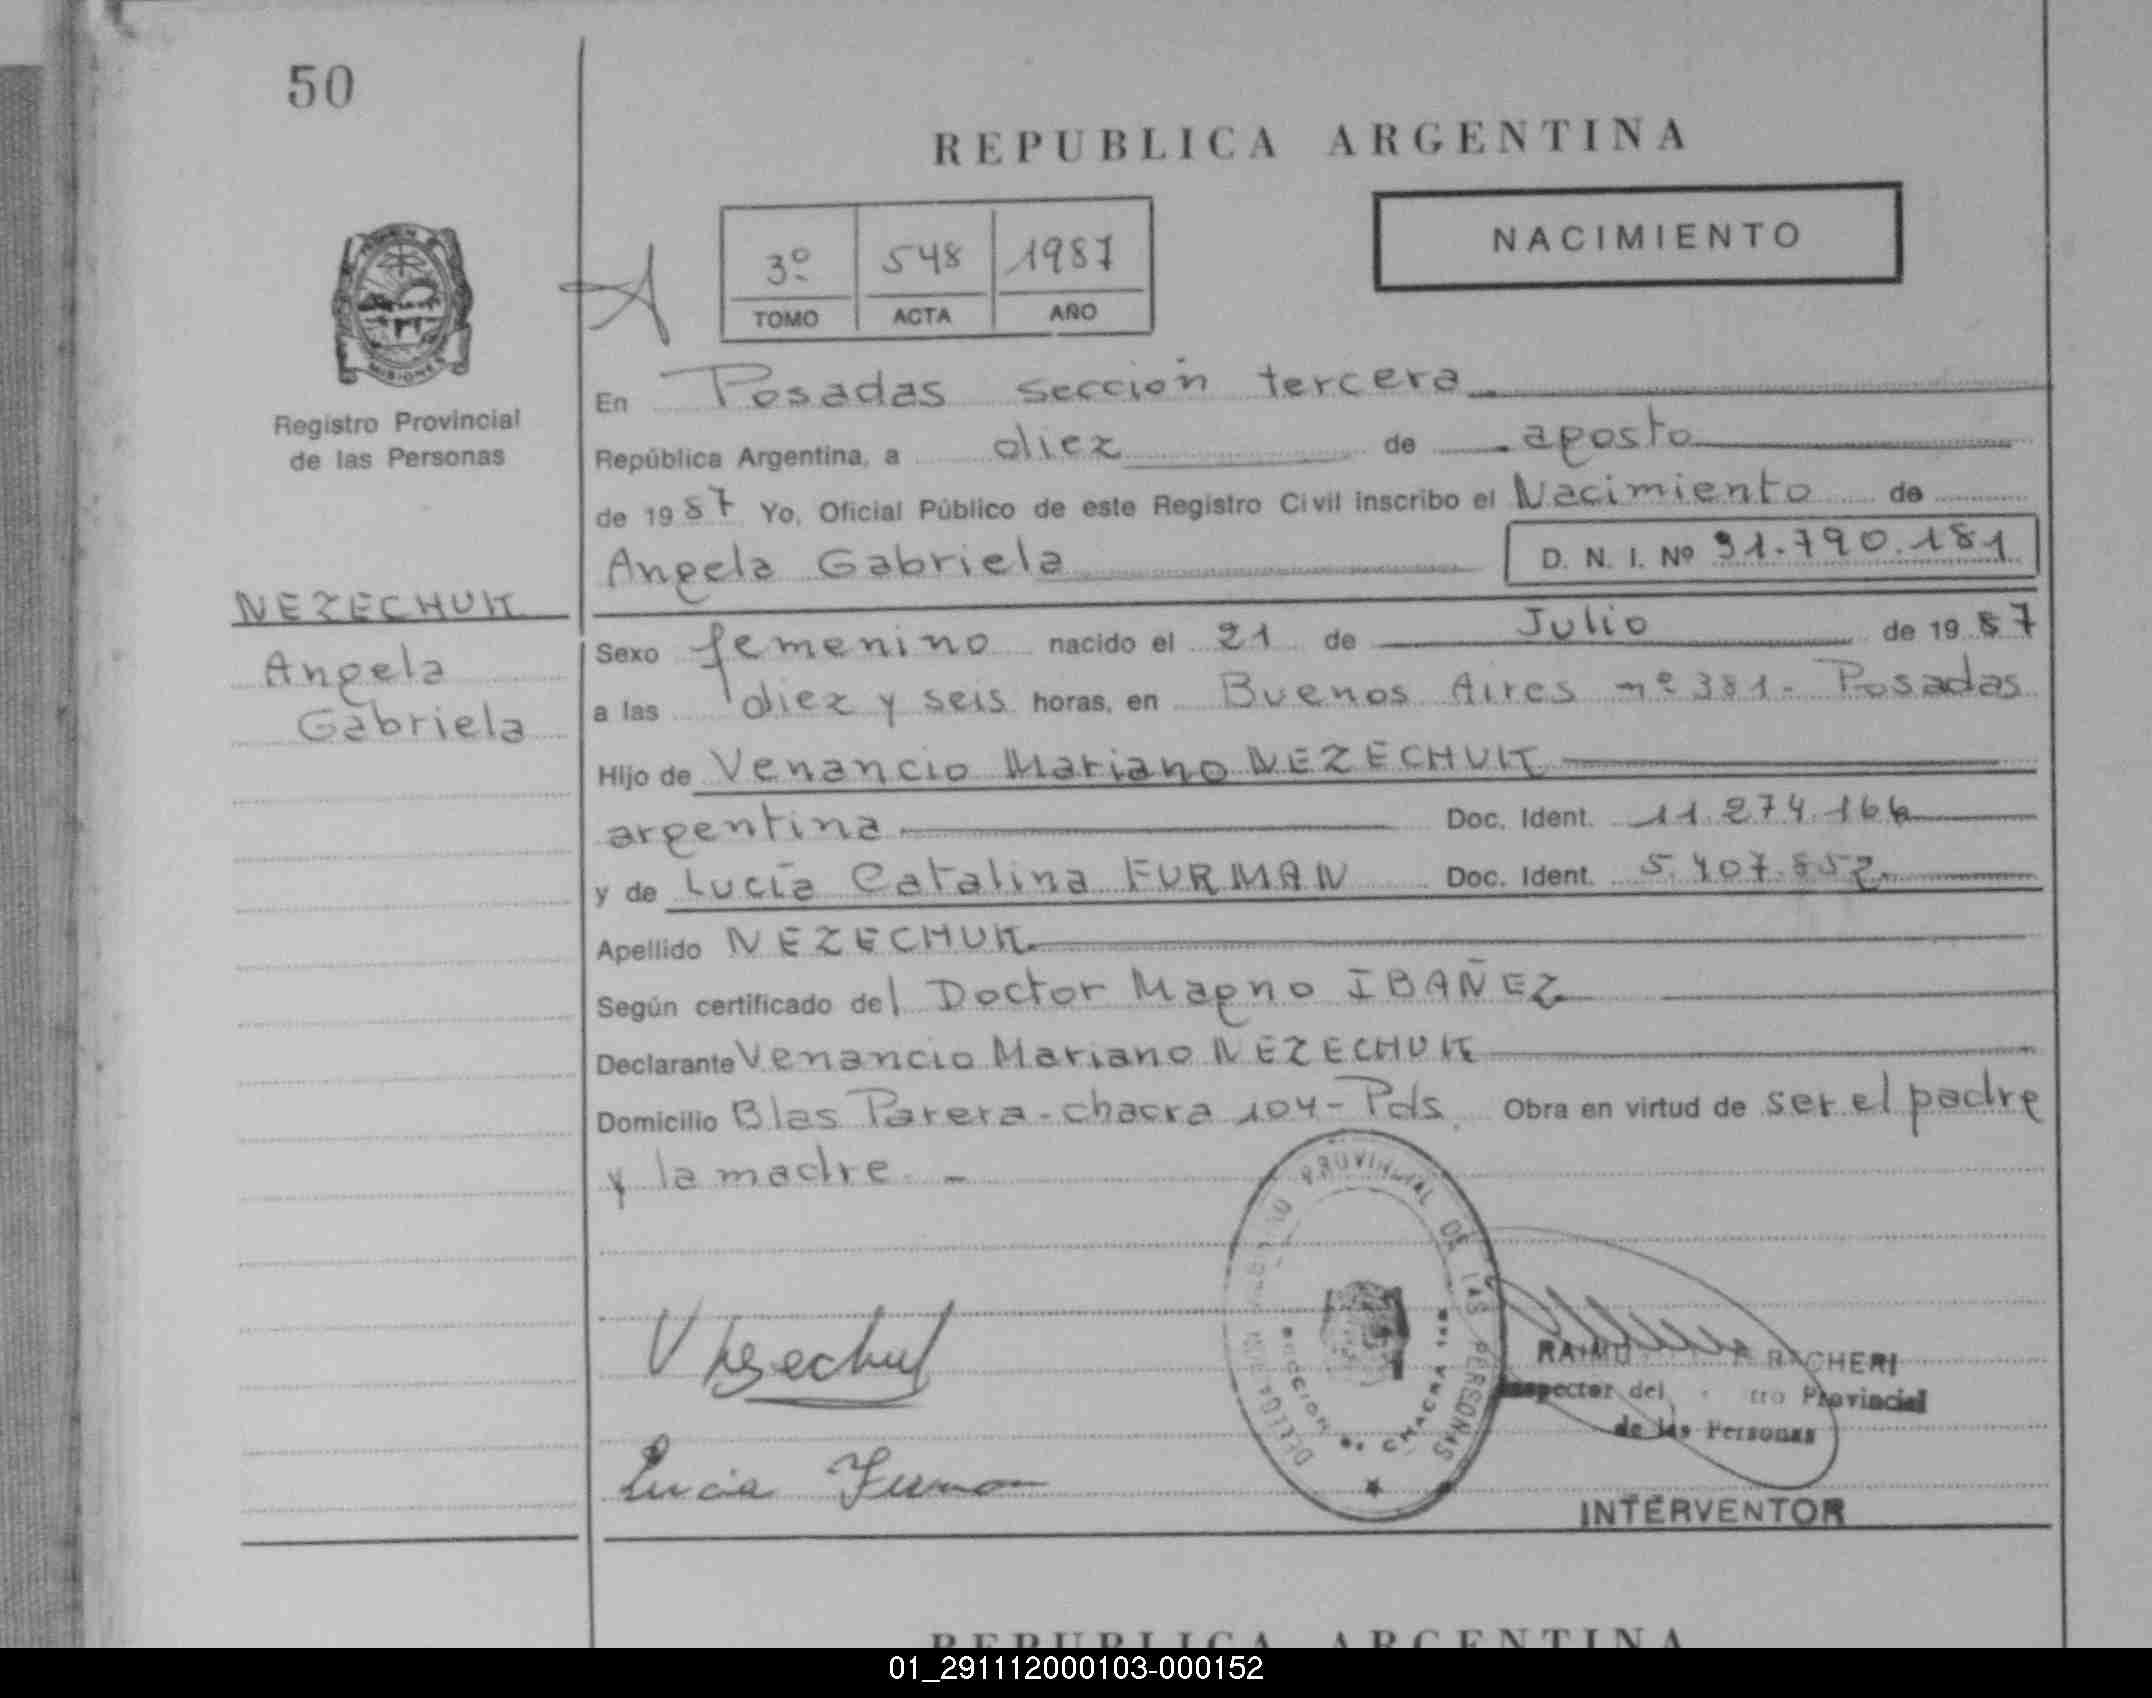 50
REPUBLICA ARGENTINA
NACIMIENTO
3º 548 1987
TOMO ACTA AÑO
MISIONES
Registro Provincial
de las Personas
En Posadas sección tercera
República Argentina, a diez de agosto
de 1987 Yo, Oficial Público de este Registro Civil inscribo el Nacimiento de
Angela Gabriela D. N. I. Nº 31.790.181
NEZECHUK
Angela
Gabriela
Sexo femenino nacido el 21 de Julio de 1987
a las diez y seis horas, en Buenos Aires nº 381- Posadas
Hijo de Venancio Mariano NEZECHUK
argentina Doc. Ident. 11.274.166
y de Lucía Catalina FURMAN Doc. Ident. 5.407.852
Apellido NEZECHUK
Según certificado del Doctor Magno IBAÑEZ
Declarante Venancio Mariano NEZECHUK
Domicilio Blas Parera - chacra 104 - Pds. Obra en virtud de ser el padre
y la madre. -
PROVINCIAL DE LAS PERSONAS
SECCION CHACRA
Lucia Furman
Inspector del Provincial
de las Personas
INTERVENTOR
REPUBLICA ARGENTINA
01_291112000103-000152